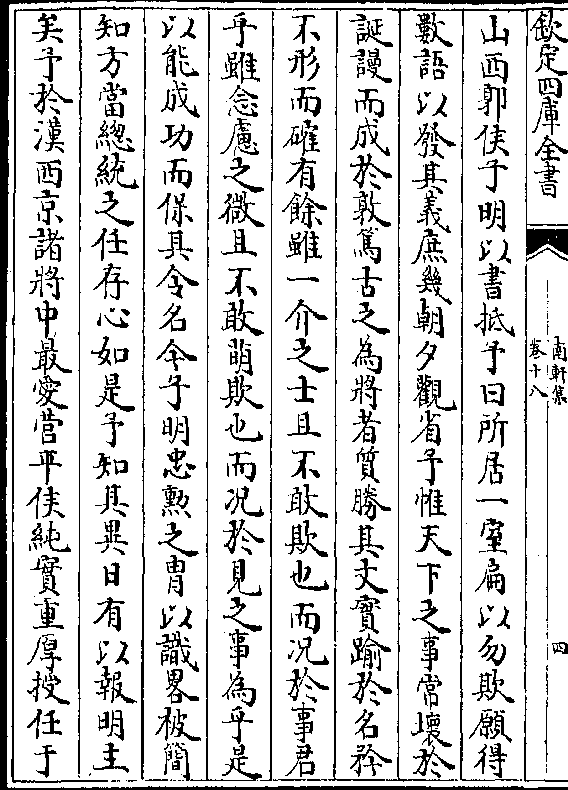 欽定四庫全書
南軒集
卷十八
四
山西郭侯子明以書抵予曰所居一室扁以勿欺願得
數語以發其義庶幾朝夕觀省予惟天下之事常壞於
誕謾而成於敦篤古之為將者質勝其文實踰於名矜
不形而確有餘雖一介之士且不敢欺也而况於事君
乎雖念慮之微且不敢萌欺也而况於見之事為乎是
以能成功而保其令名今子明忠勲之胄以識畧被簡
知方當總統之任存心如是予知其異日有以報明主
矣予於漢西京諸將中最愛營平侯純實重厚授任于